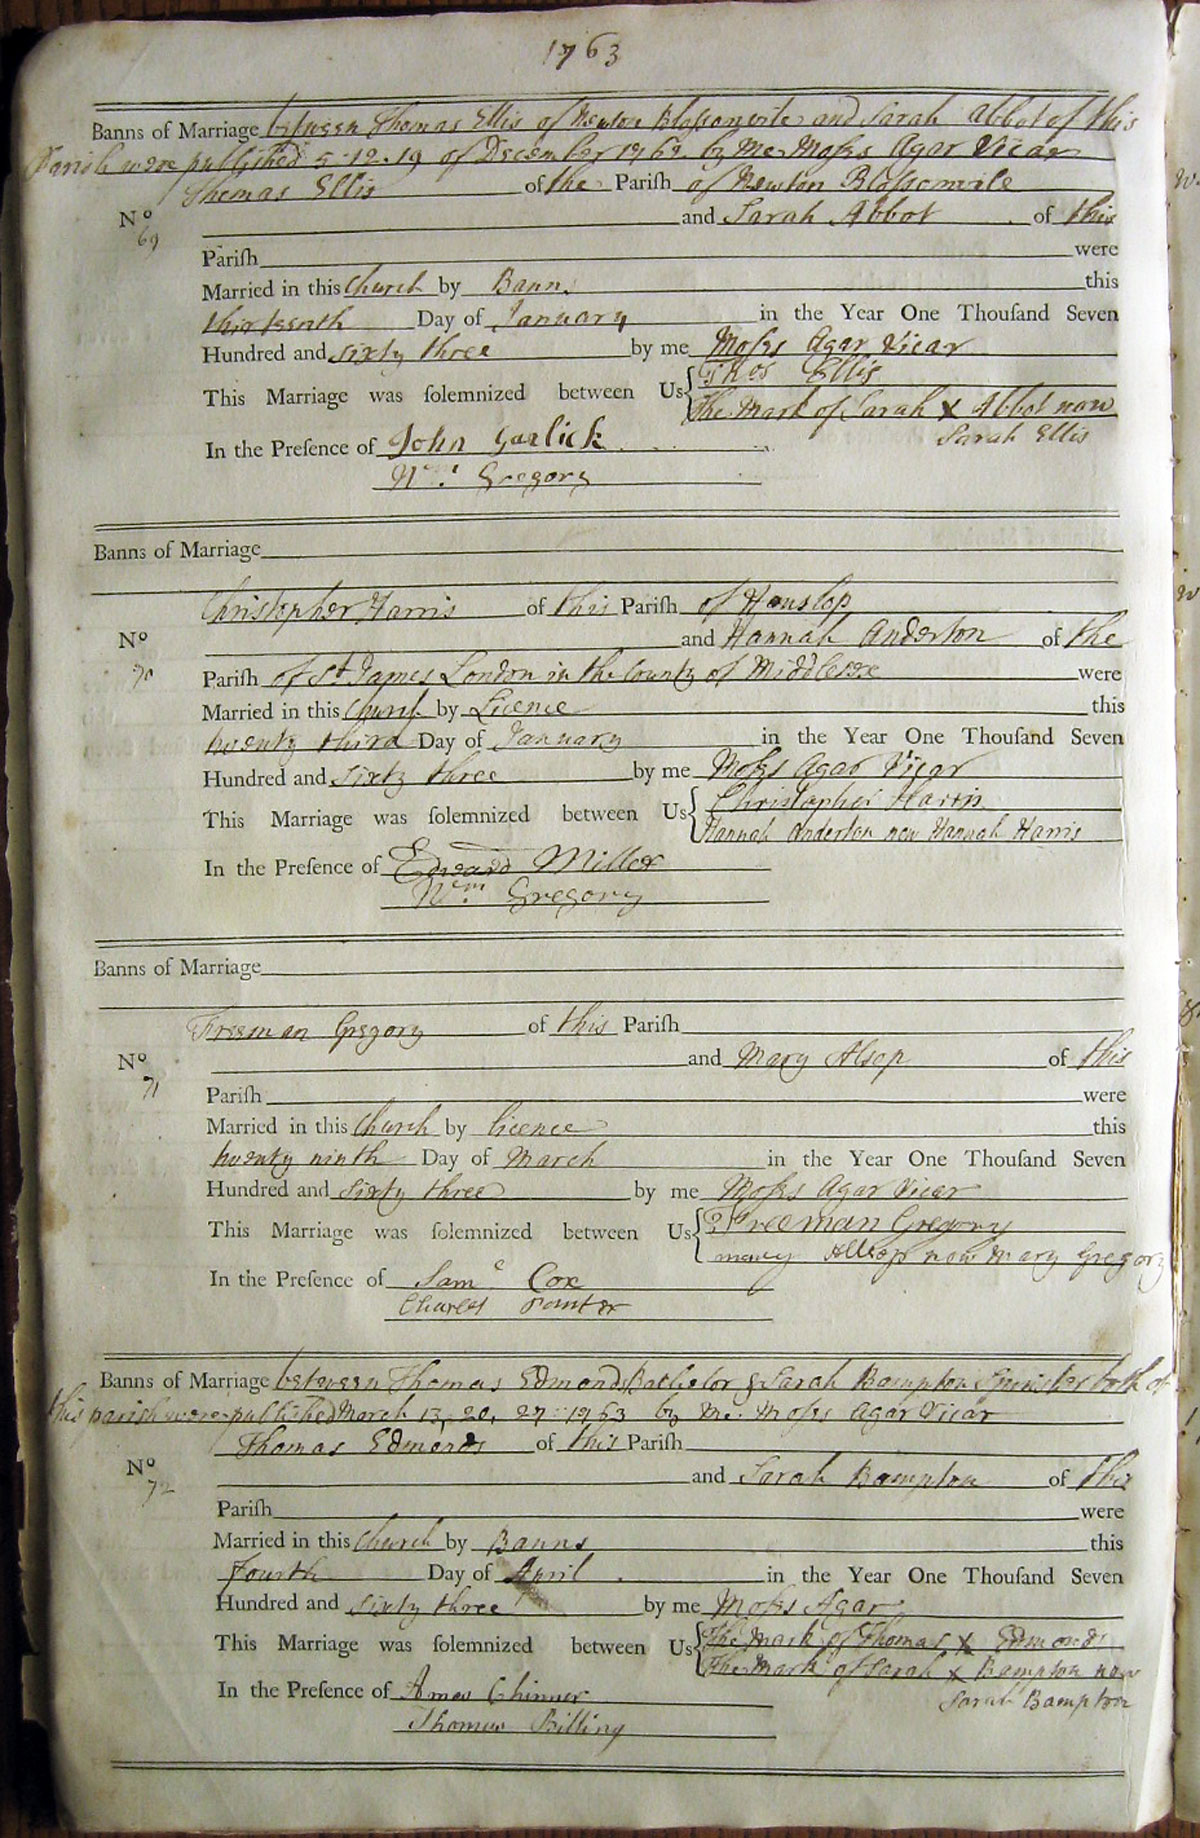 1763
Banns of Marriage between Thomas Ellis of Newton Blossomvile and Sarah Abbot of this
Parish were published 5-12-19 of December 1762 by Me Moſes Agar Vicar
Thomas Ellis of the Pariſh of Newton Bloſsomvile
No 69 and Sarah Abbot of this
Pariſh were
Married in this Church by Banns this
thirteenth Day of January in the Year One Thouſand Seven
Hundred and sixty three by me Moſes Agar Vicar
This Marriage was ſolemnized between Us Thos Ellis
The Mark of Sarah X Abbot now
Sarah Ellis
In the Preſence of John Garlick
Wm Gregory
Banns of Marriage
Christopher Harris of this Pariſh of Hanslop
No 70 and Hannah Anderton of the
Pariſh of St James London in the County of Middlesex were
Married in this Church by Licence this
twenty third Day of January in the Year One Thouſand Seven
Hundred and sixty three by me Moſes Agar Vicar
This Marriage was ſolemnized between Us Christopher Harris
Hannah Anderton now Hannah Harris
In the Preſence of Edward Miller
Wm Gregory
Banns of Marriage
Freeman Gregory of this Pariſh
No 71 and Mary Alsop of this
Pariſh were
Married in this Church by licence this
twenty ninth Day of March in the Year One Thouſand Seven
Hundred and sixty three by me Moſes Agar Vicar
This Marriage was ſolemnized between Us Freeman Gregory
mary Allsop now Mary Gregory
In the Preſence of Saml Cox
Charles
Banns of Marriage between Thomas Edmonds Batchelor & Sarah Bampton Spinster both of
this parish were published March 13, 20, 27 1763 by Me Moſes Agar Vicar
Thomas Edmonds of this Pariſh
No 72 and Sarah Bampton of this
Pariſh were
Married in this Church by Banns this
Fourth Day of April in the Year One Thouſand Seven
Hundred and sixty three by me Moſes Agar
This Marriage was ſolemnized between Us The Mark of Thomas X Edmonds
The Mark of Sarah X Bampton now
Sarah Bampton
In the Preſence of Amos Chinner
Thomas Billing